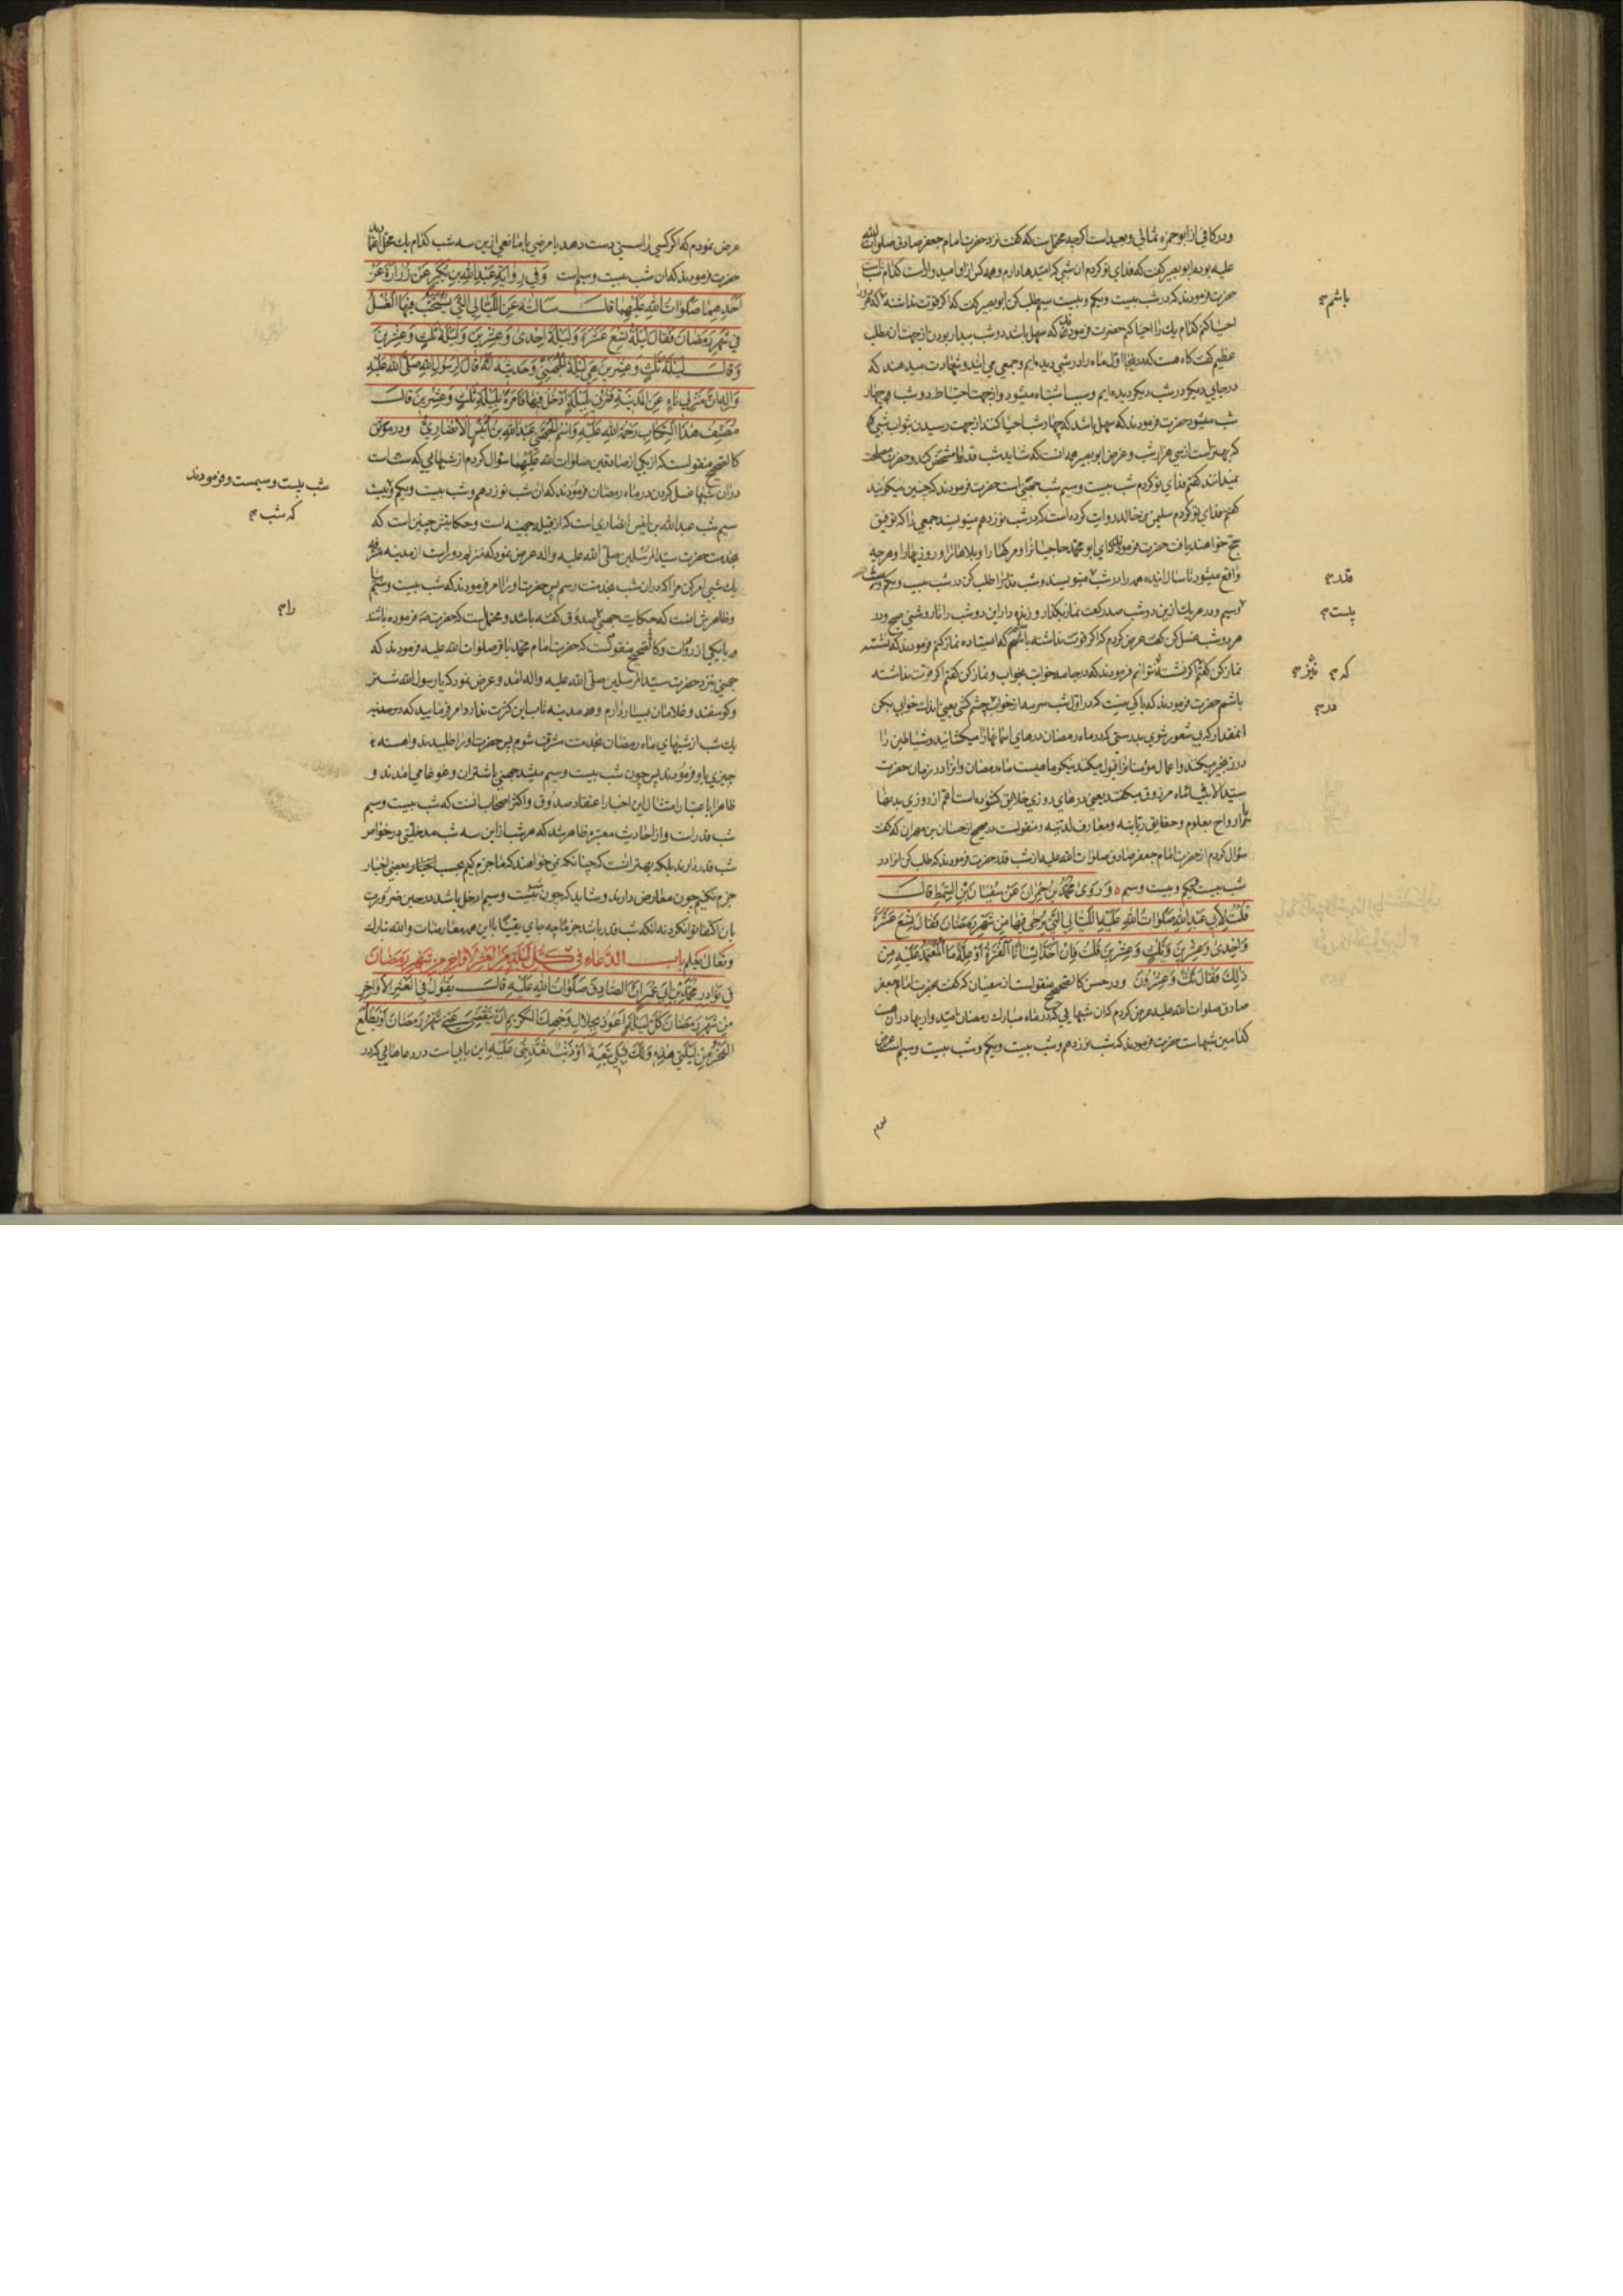 ودر کافی از ابو حمزه ثمالی و بعید است اگرچه محتملست که گفت نزد حضرت امام جعفر صادق صلوات الله
علیه بودم ابو بصیر گفت که فدای تو کردم ان شبی که امیدها دارم
حضرت فرمودند که در شب بیست ویکم و بیست سیم طلب کن ابو بصیر گفت که اگر قوت نداشته
باشم
احیا کنم کدام یك را احیا کنم حضرت فرمودند که سهل باشد دو شب بیدار بودن از جهت ان طلب
عظیم گفت گاه هست که در اینجا اول ماه را در شبی دیده‌ایم وجمعی می ایند و شهادت میدهند که
در جایی دیگر در شب دیگر دیده ایم و سبب اشتباه میشود و از جهت احتیاط دو شب چهار
شب میشود حضرت فرمودند که سهل باشد که چهار شب احیا کنند از جهت رسیدن بثواب شبی
که بهتر است از سی هزار شب و غرض ابو بصیر همه انست که شاید شب قدر را مشخص کند و حضرت مصلحت
نمیدانند گفتم فدای تو کردم شب بیست و سیم شب جهنی است حضرت فرمودند که چنین میگویند
گفتم فدای تو کردم سلیمن بن خالد روایت کرده است که در شب نوزدهم مینویسند جمعی را که توفیق
حج خواهند یافت حضرت فرمودند که ای ابو محمد حاجیانرا و مرگها را و بلاها را و روزیها را و هرچه
واقع میشود تا سال اینده همه را در شب مینویسند و شب قدر را طلب کن در شب بیست ویکم
قدر
وسیم و در هر یك ازین دو شب صد رکعت نماز بگذار و زنده دار این دو شب را تا روشنی صبح و در
بیست
هر دو شب غسل کن گفت عرض کردم که اگر قوت نداشته باشم که ایستاده نماز کنم فرمودند که نشسته
نماز کن گفتم اگر نشسته نتوانم فرمودند که در جامه خوابت بخواب و نماز کن گفتم اگر قوت نداشته
باشم حضرت فرمودند که باکی نیست که در اول شب سرمه از خواب بچشم کشی یعنی اندك خوابی بکنی
انمقدار که بی شعور شوی بدرستی که در ماه رمضان درهای اسمانها را میکشایند و شیاطین را
در زنجیر میکنند و اعمال مؤمنانرا قبول میکنند نیکو ماهیست ماه رمضان و انرا در زمان حضرت
سید الانبیا ماه مرزوق میگفتند یعنی درهای روزی خلایق گشوده است اعم از روزی بدنها
یا ارواح بعلوم و حقایق ربانیه و معارف لدنیه و منقولست در صحیح از حسان بن مهران که گفت
سؤال کردم از حضرت امام جعفر صادق صلوات الله علیه از شب قدر حضرت فرمودند که طلب کن انرا در
شب بیست ویکم و بیست وسیم وَرَوى مُحَمَّدُ بنُ حُمرانَ عَن سُفیانَ بنِ السِّمطِ قالَ
قُلتُ لِاَبی عَبدِ اللّٰهِ صَلَواتُ اللّٰهِ عَلَیهِ اللَّیالی الَّتی یُرجى فیها مِن شَهرِ رَمَضانَ فَقالَ تِسعَ عَشَرَةَ
وَاِحدى وَعِشرینَ وَثَلثٍ وَعِشرینَ قُلتُ فَاِن اَخَذَت اِنسانًا الفَترَةُ اَو عِلَّةٌ مَا المُعتَمَدُ عَلَیهِ مِن
ذلِكَ فَقالَ ثَلثٌ وَعِشرونَ ودر حسن کالصحیح منقولست از سفیان که گفت بحضرت امام جعفر
صادق صلوات الله علیه عرض کردم که ان شبهایی که در ماه مبارك رمضان امیدواریها در ان هست
کدامین شبهاست حضرت فرمودند که شب نوزدهم وشب بیست ویکم وشب بیست وسیم است عرض
عرض نمودم که اگر کسی را سستی دست دهد یا مرضی یا مانعی ازین سه شب کدام یك محل اعتماد
حضرت فرمودند که ان شب بیست وسیم است وَفی رِوایَةِ عَبدِ اللّٰهِ بنِ بُکَیرٍ عَن زُرارَةَ عَن
اَحَدِهِما صَلَواتُ اللّٰهِ عَلَیهِما قالَ سَاَلتُهُ عَنِ اللَّیالی الَّتی یُستَحَبُّ فیهَا الغُسلُ
فی شَهرِ رَمَضانَ فَقالَ لَیلَةُ تِسعَ عَشَرَةَ وَلَیلَةُ اِحدى وَعِشرینَ وَلَیلَةُ ثَلثٍ وَعِشرینَ
وَقالَ لَیلَةُ ثَلثٍ وَعِشرینَ هِیَ لَیلَةُ الجُهَنِیِّ وَحَدیثُهُ اَنَّهُ قالَ لِرَسولِ اللّٰهِ صَلَّى اللّٰهُ عَلَیهِ
وَآلِهِ اِنَّ مَنزِلی نَاءٍ عَنِ المَدینَةِ فَمُرنی بِلَیلَةٍ اَدخُلُ فیها فَاَمَرَهُ بِلَیلَةِ ثَلثٍ وَعِشرینَ قالَ
مُصَنِّفُ هذَا الکِتابِ رَحمَةُ اللّٰهِ عَلَیهِ وَاسمُ الجُهَنِیِّ عَبدُ اللّٰهِ بنُ اُنَیسٍ الاَنصارِیُّ ودر موثق
کالصحیح منقولست که از یکی از صادقین صلوات الله علیهما سؤال کردم از شبهایی که سنت است
در ان شبها غسل کردن در ماه رمضان فرمودند که ان شب نوزدهم وشب بیست ویکم وبیست
شب بیست وسیمست وفرمودند
که شب
سیم شب عبدالله بن انیس انصاری است که از قبیله جهینه است وحکایتش چنین است که
بخدمت حضرت سید المرسلین صلی الله علیه واله عرض نمود که منزلم دور است از مدینه
یك شبی امر کن مرا که در ان شب بخدمت رسم پس حضرت او را امر فرمودند که شب بیست وسیم
را
وظاهرش انست که حکایت جهنی صدوق گفته باشد ومحتملست که حضرت فرموده باشد
یا یکی از روات وکالصحیح منقولست که حضرت امام محمد باقر صلوات الله علیه فرمودند که
جهنی بنزد حضرت سید المرسلین صلی الله علیه واله امد وعرض نمود که یا رسول الله شتر
وکوسفند وغلامان بسیار دارم وهمه مدینه تاب این کثرت ندارد امر فرمایید که در مدینه
یك شب از شبهای ماه رمضان بخدمت مشرف شوم پس حضرت او را طلبیدند واهسته
چیزی باو فرمودند پس چون شب بیست وسیم میشد جهنی با شتران وغوغا می امدند و
ظاهرا باعتبار امثال این اخبار اعتقاد صدوق واکثر اصحاب انست که شب بیست وسیم
شب قدر است واز احادیث معتبره ظاهر شد که هر شب ازین سه شب مدخلیتی در خواص
شب قدر دارند بلکه بهتر انست که چنانکه نمی خواهند که ما جزم کنیم بحسب بعضی اخبار
جزم نکنیم چون معارض دارند وشاید که چون شب بیست وسیم ادخل باشد در حین ضرورت
بان اکتفا توان کرد نه انکه شب قدر باشد جزما چه جای یقینا با این همه معارضات والله تبارك
وتعالی یعلم باب الدُّعاءِ فی کُلِّ لَیلَةٍ مِنَ العَشرِ الاَواخِرِ مِن شَهرِ رَمَضانَ
فی نَوادِرِ مُحَمَّدِ بنِ اَبی عُمَیرٍ اَنَّ الصّادِقَ صَلَواتُ اللّٰهِ عَلَیهِ قالَ یَقولُ فی العَشرِ الاَواخِرِ
مِن شَهرِ رَمَضانَ کُلَّ لَیلَةٍ اَعوذُ بِجَلالِ وَجهِكَ الکَریمِ اَن یَنقَضِیَ عَنّی شَهرُ رَمَضانَ اَو یَطلُعَ
الفَجرُ مِن لَیلَتی هذِهِ وَلَكَ قِبَلی تَبِعَةٌ اَو ذَنبٌ تُعَذِّبُنی عَلَیهِ این بابیست در دعاهایی که در